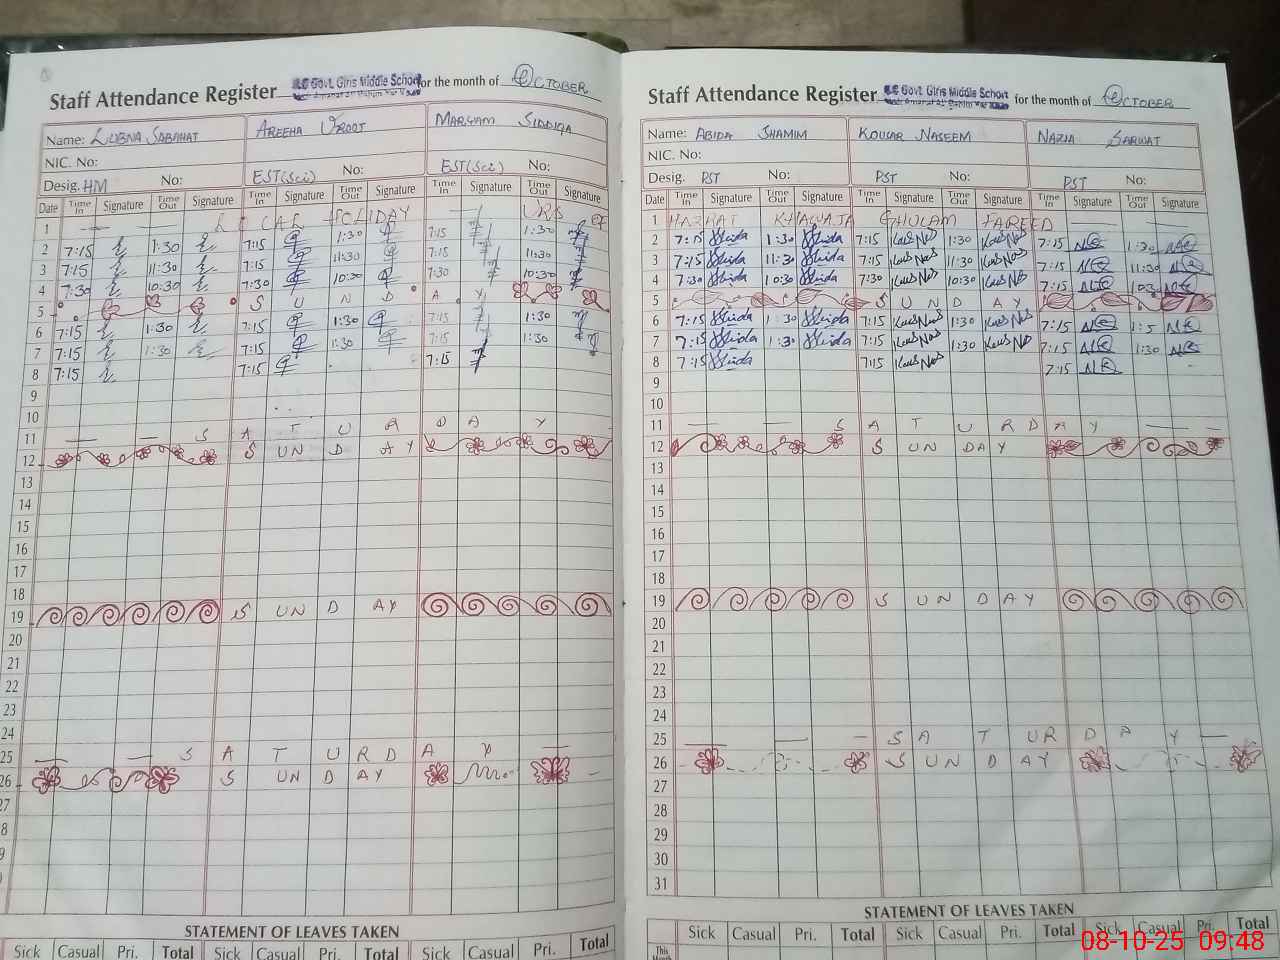 Staff Attendance Register Govt. Girls Middle School for the month of OCTOBER
Name: LUBNA SABAHAT AREEHA UROOT MARYAM SIDDIQA
NIC. No:
Desig. HM No: EST(Sci) No: EST(Sci) No:
Date Time In Signature Time Out Signature Time In Signature Time Out Signature Time In Signature Time Out Signature
1 — — LOCAL HOLIDAY — URS OF
2 7:15 1:30 7:15 1:30 7:15 1:30
3 7:15 11:30 7:15 11:30 7:15 11:30
4 7:30 10:30 7:30 10:30 7:30 10:30
5 S U N D A Y
6 7:15 1:30 7:15 1:30 7:15 1:30
7 7:15 1:30 7:15 1:30 7:15 1:30
8 7:15 7:15 7:15
9
10
11 — — S A T U R D A Y
12 S UN D AY
13
14
15
16
17
18
19 S UN D AY
20
21
22
23
24
25 — — S A T U R D A Y —
26 S UN D AY
27
28
29
STATEMENT OF LEAVES TAKEN
Sick Casual Pri. Total Sick Casual Pri. Total Sick Casual Pri. Total
Staff Attendance Register Govt. Girls Middle School for the month of OCTOBER
Name: ABIDA SHAMIM KOUSAR NASEEM NAZIA SARWAT
NIC. No:
Desig. PST No: PST No: PST No:
Time In Signature Time Out Signature Time In Signature Time Out Signature Time In Signature Time Out Signature
1 HAZRAT KHAWAJA GHULAM FAREED — —
2 7:15 1:30 7:15 1:30 7:15 1:30
3 7:15 11:30 7:15 11:30 7:15 11:30
4 7:30 10:30 7:30 10:30 7:15 10:3
5 S U N D AY
6 7:15 1:30 7:15 1:30 7:15 1:5
7 7:15 1:30 7:15 1:30 7:15 1:30
8 7:15 7:15 7:15
9
10
11 — — S A T U R D A Y — —
12 S UN DAY
13
14
15
16
17
18
19 S UN D A Y
20
21
22
23
24
25 — — — S A T UR D A Y —
26 S UN D AY
27
28
29
30
31
STATEMENT OF LEAVES TAKEN
Sick Casual Pri. Total Sick Casual Pri. Total Sick Casual Pri. Total
This
08-10-25 09:48